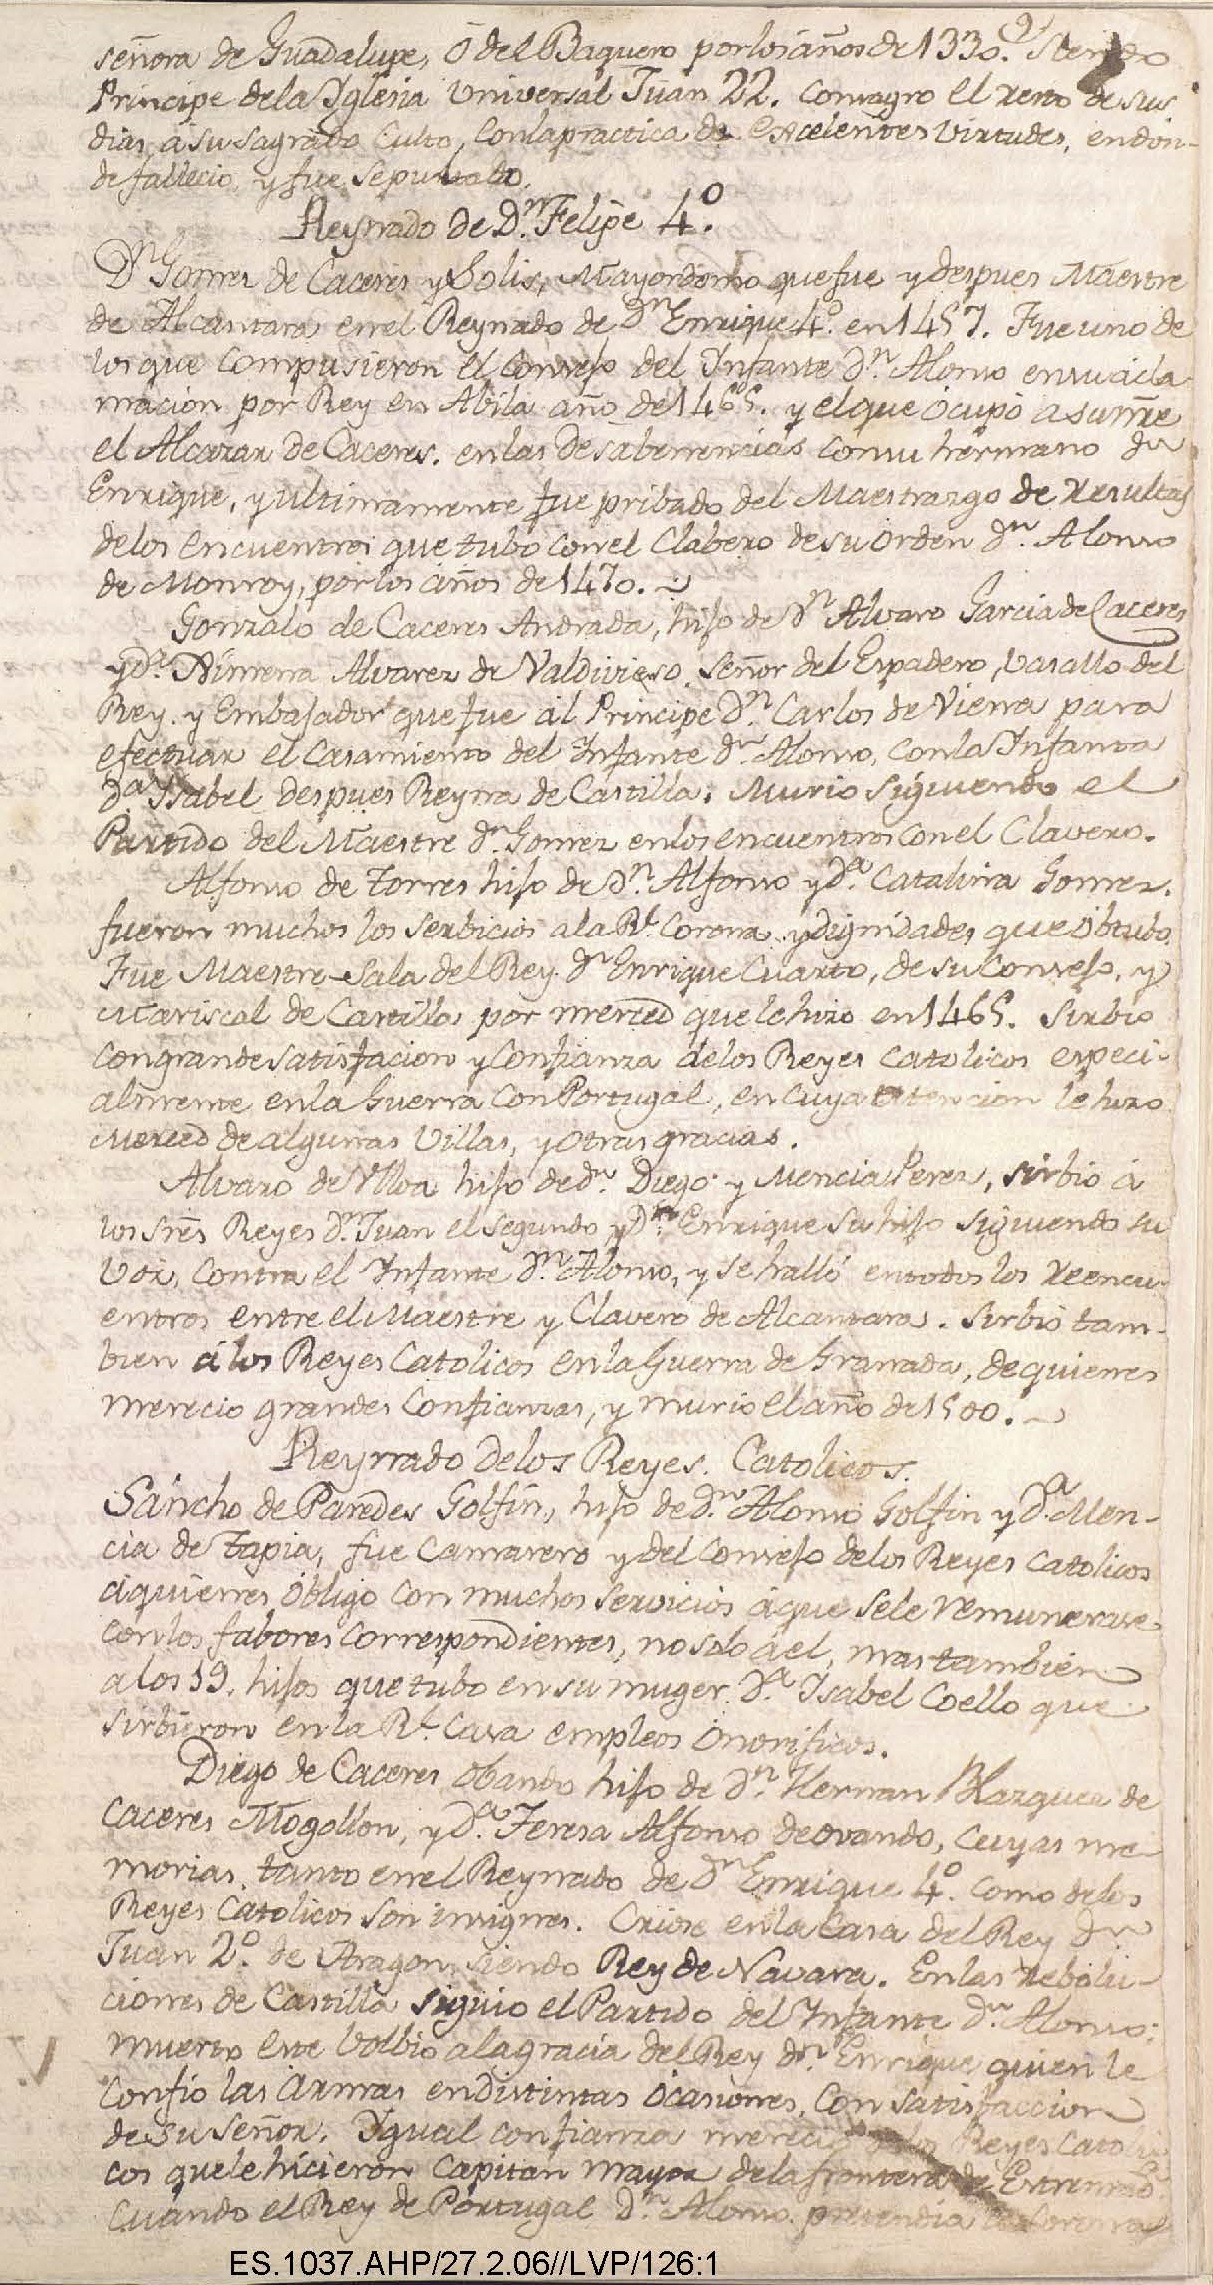 señora de Guadalupe, ó del Baquero por los años de 1330. Siendo
Principe de la Yglesia Universal Juan 22. Consagro el resto de sus
dias, á su sagrado Culto, con la practica de excelentes virtudes, en don-
de fallecio, y fue sepultado.
Reynado de Dn. Felipe 4.º
Dn Gomez de Caceres y Solis, Mayordomo que fue y despues Maestre
de Alcantara en el Reynado de Dn Enrique 4.º en 1457. Fue uno de
los que compusieron el Consejo del Ynfante Dn. Alonso en su acla-
macion por Rey en Abila año de 1465. y el que ocupó a su nñre
el Alcazar de Caceres. en las desabenencias con su hermano dn
Enrique, y ultimamente fue pribado del Maestrazgo de resultas
de los encuentros que tubo con el Clabero de su orden dn. Alonso
de Monroy, por los años de 1470.
Gonzalo de Caceres Andrada, hijo de Dn Alvaro Garcia de Caceres
y Dª. Ximena Alvarez de Valdivieso. Señor del Espadero, vasallo del
Rey. y Embajador que fue al Principe Dn. Carlos de Viena para
efectuar el Casamiento del Ynfante dn Alonso, con la Ynfanta
Dª. Isabel despues Reyna de Castilla. Murio siguiendo el
Partido del Maestre dn. Gomez en los encuentros con el Clavero.
Alfonso de Torres hijo de Dn. Alfonso y Dª. Catalina Gomez.
fueron muchos los serbicios a la Rl. Corona y dignidades que obtubo.
Fue Maestre-Sala del Rey. dn Enrique Cuarto, de su Consejo, y
Mariscal de Castilla por merced que le hizo en 1465. Sirbio
con grande satisfacion y confianza de los Reyes Catolicos especi-
almente en la Guerra con Portugal, en cuya atencion le hizo
Merced de algunas Villas, y otras gracias.
Alvaro de Ulloa hijo de dn. Diego y Mencia Perez, sirbio á
los Sres Reyes Dn. Juan el segundo y Dn. Enrique su hijo siguiendo su
Voz, contra el Ynfante Dn. Alonso, y se halló en todos los reencu-
entros entre el Maestre y Clavero de Alcantara. Sirbió tam-
bien á los Reyes Catolicos en la Guerra de Granada, de quienes
merecio grandes confianzas, y murio el año de 1500.
Reynado de los Reyes. Catolicos.
Sancho de Paredes Golfin, hijo de dn. Alonso Golfin y Dª. Men-
cia de Tapia, fue Camarero y del Consejo de los Reyes Catolicos
á quienes obligo con muchos servicios á que se le remunerase
con los fabores correspondientes, no solo á el, mas tambien
a los 19. hijos que tubo en su muger Dª. Isabel Coello que
sirbieron en la Rl. Casa empleos onorificos.
Diego de Caceres obando hijo de Dn. Hernan Blazquez de
Caceres Mogollon, y Dª. Teresa Alfonso de ovando, cuyas me-
morias, tanto en el Reynado de Dn Enrique 4.º como de los
Reyes Catolicos son insignes. Criose en la Casa del Rey Dn
Juan 2.º de Aragon, siendo Rey de Navara. En las rebolu-
ciones de Castilla siguio el Partido del Ynfante Dn. Alonso:
muerto este bolbio a la gracia del Rey dn. Enrique quien le
confio las armas en distintas ocasiones, con satisfaccion
de su señor. Ygual confianza merecio de los Reyes Catoli-
cos que le hicieron Capitan mayor de la frontera de Extremad.ª
Cuando el Rey de Portugal Dn. Alonso pretendia la Corona
ES.1037.AHP/27.2.06//LVP/126:1